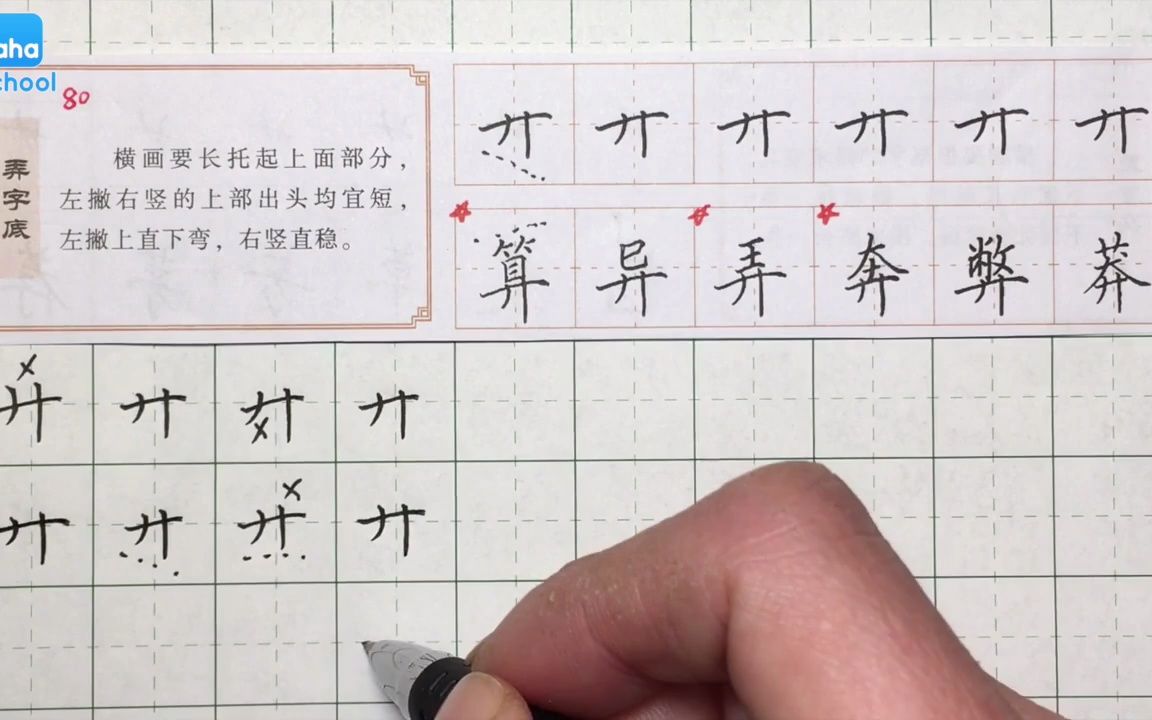 aha
chool
80
弄字底
横画要长托起上面部分，
左撇右竖的上部出头均宜短，
左撇上直下弯，右竖直稳。
廾 廾 廾 廾 廾 廾
算 异 弄 奔 弊 莽
x
廾 廾 廾 廾
x
x
廾 廾 廾 廾